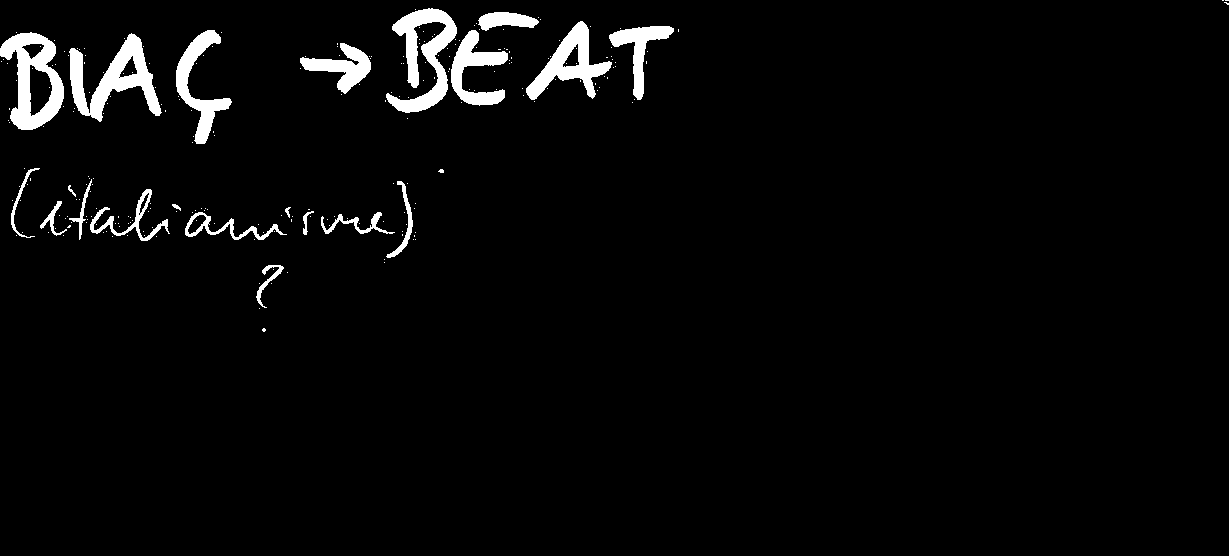 BIAÇ → BEAT
(italianisme)
?